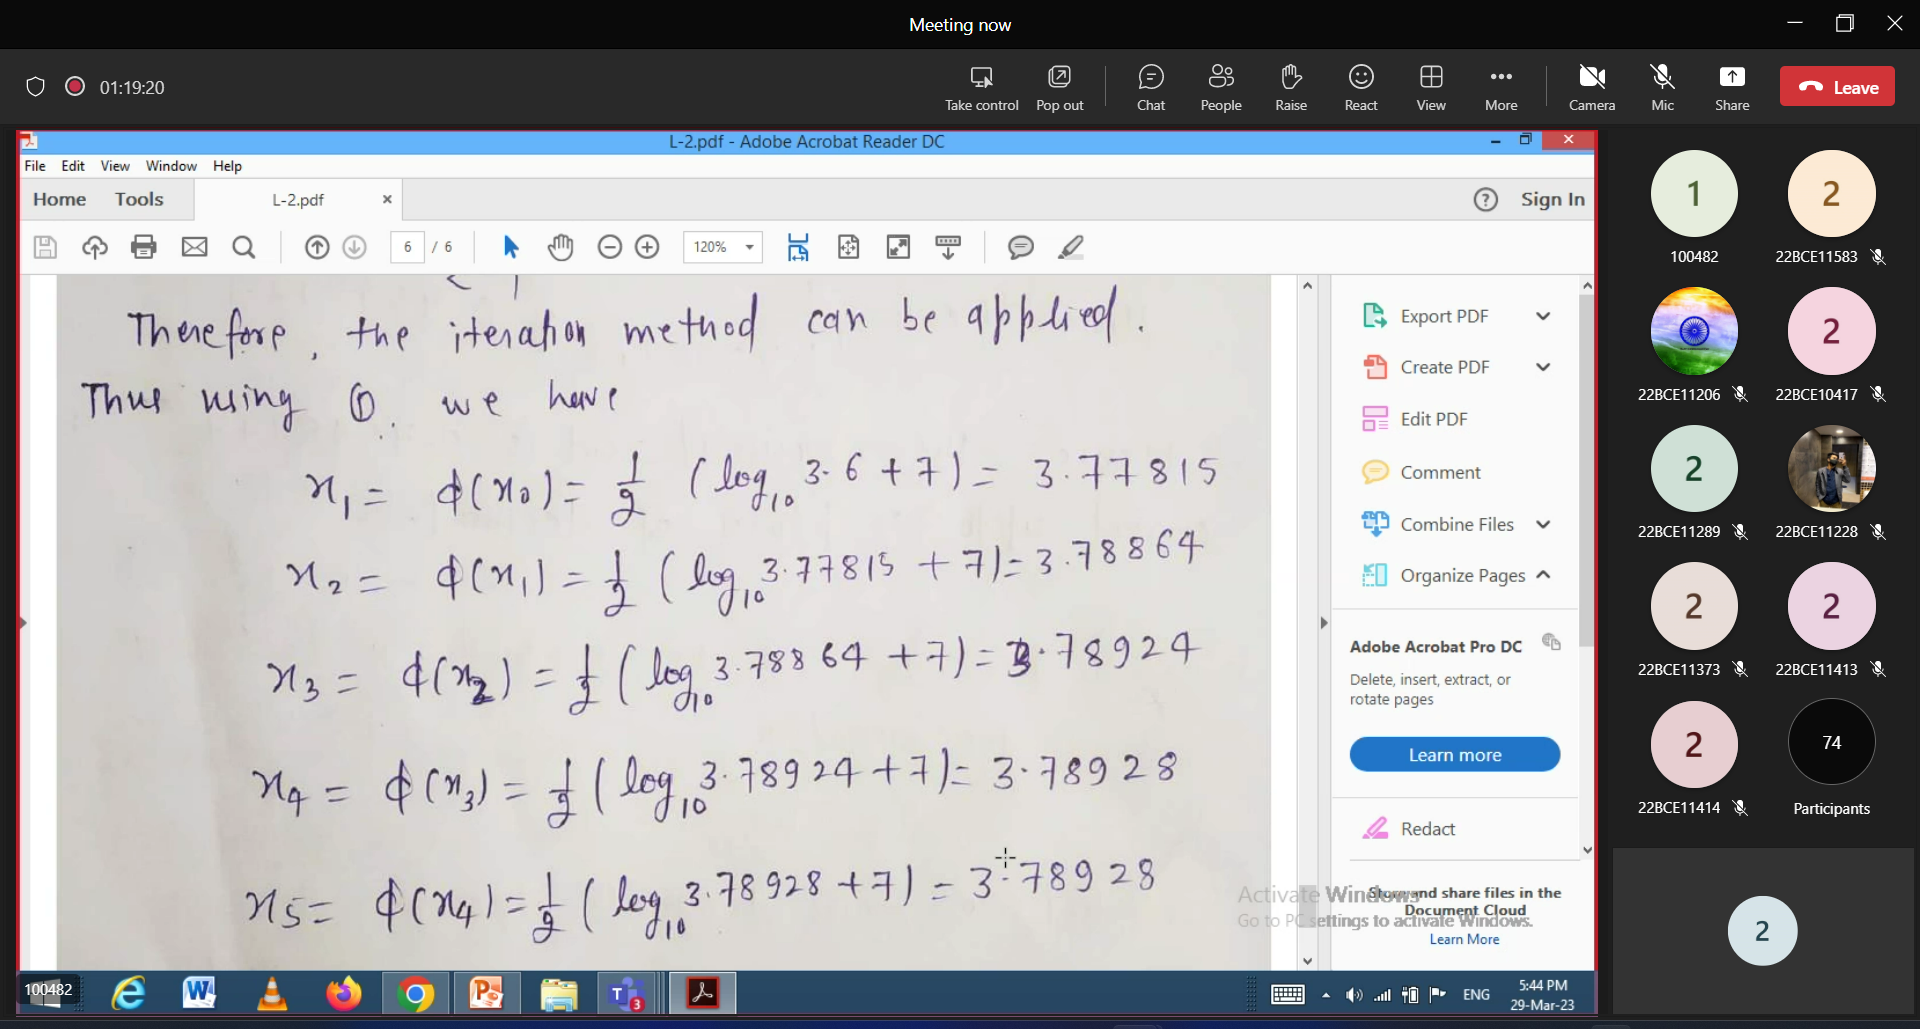 Meeting now
01:19:20
Take control
Pop out
Chat
People
Raise
React
View
More
Camera
Mic
Share
Leave
L-2.pdf - Adobe Acrobat Reader DC
File Edit View Window Help
Home Tools L-2.pdf × ? Sign In
6 / 6 120%
Therefore, the iteration method can be applied.
Thus using ①, we have
x₁ = ϕ(x₀) = 1/2 (log₁₀ 3.6 + 7) = 3.77815
x₂ = ϕ(x₁) = 1/2 (log₁₀ 3.77815 + 7) = 3.78864
x₃ = ϕ(x₂) = 1/2 (log₁₀ 3.78864 + 7) = 3.78924
x₄ = ϕ(x₃) = 1/2 (log₁₀ 3.78924 + 7) = 3.78928
x₅ = ϕ(x₄) = 1/2 (log₁₀ 3.78928 + 7) = 3.78928
Export PDF
Create PDF
Edit PDF
Comment
Combine Files
Organize Pages
Adobe Acrobat Pro DC
Delete, insert, extract, or
rotate pages
Learn more
Redact
Store and share files in the
Document Cloud
Learn More
Activate Windows
Go to PC settings to activate Windows.
1 2
100482 22BCE11583
2
22BCE11206 22BCE10417
2
22BCE11289 22BCE11228
2 2
22BCE11373 22BCE11413
2 74
22BCE11414 Participants
2
100482
3
ENG
5:44 PM
29-Mar-23